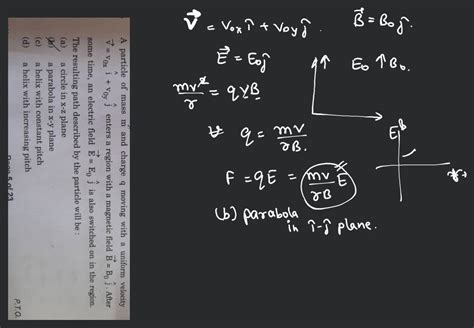 A particle of mass m and charge q moving with a uniform velocity
v⃗ = v₀ₓ î + v₀ᵧ ĵ enters a region with a magnetic field B⃗ = B₀ ĵ. After
some time, an electric field E⃗ = E₀ ĵ is also switched on in the region.
The resulting path described by the particle will be :
(a) a circle in x-z plane
(b) a parabola in x-y plane
(c) a helix with constant pitch
(d) a helix with increasing pitch
P.T.O.
V⃗ = v₀ₓ î + v₀y ĵ B⃗ = B₀ ĵ.
E⃗ = E₀ ĵ E₀ ↑↑ B₀.
mv²/r = qvB
q = mv/rB.
F = qE = mv/rB E
(b) parabola
in î-ĵ plane.
E B